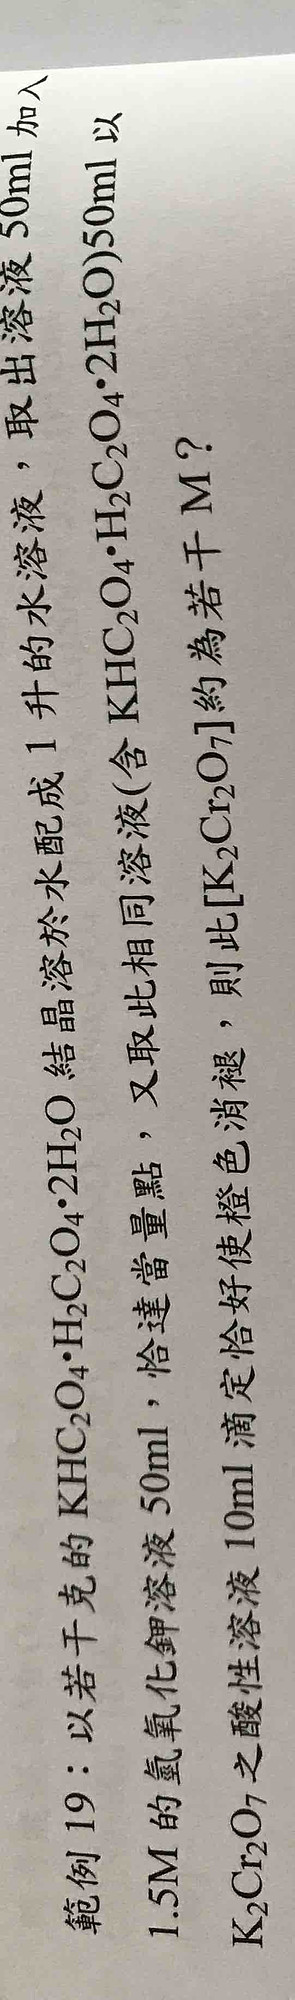 範例 19：以若干克的 KHC₂O₄•H₂C₂O₄•2H₂O 結晶溶於水配成 1 升的水溶液，取出溶液 50ml 加入
1.5M 的氫氧化鉀溶液 50ml，恰達當量點，又取此相同溶液(含 KHC₂O₄•H₂C₂O₄•2H₂O)50ml 以
K₂Cr₂O₇ 之酸性溶液 10ml 滴定恰好使橙色消褪，則此[K₂Cr₂O₇]約為若干 M？